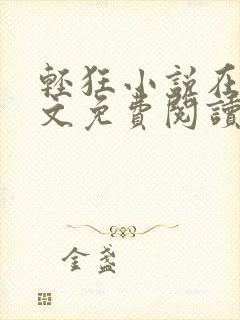 輕狂小說在
文免費閱讀
金盞